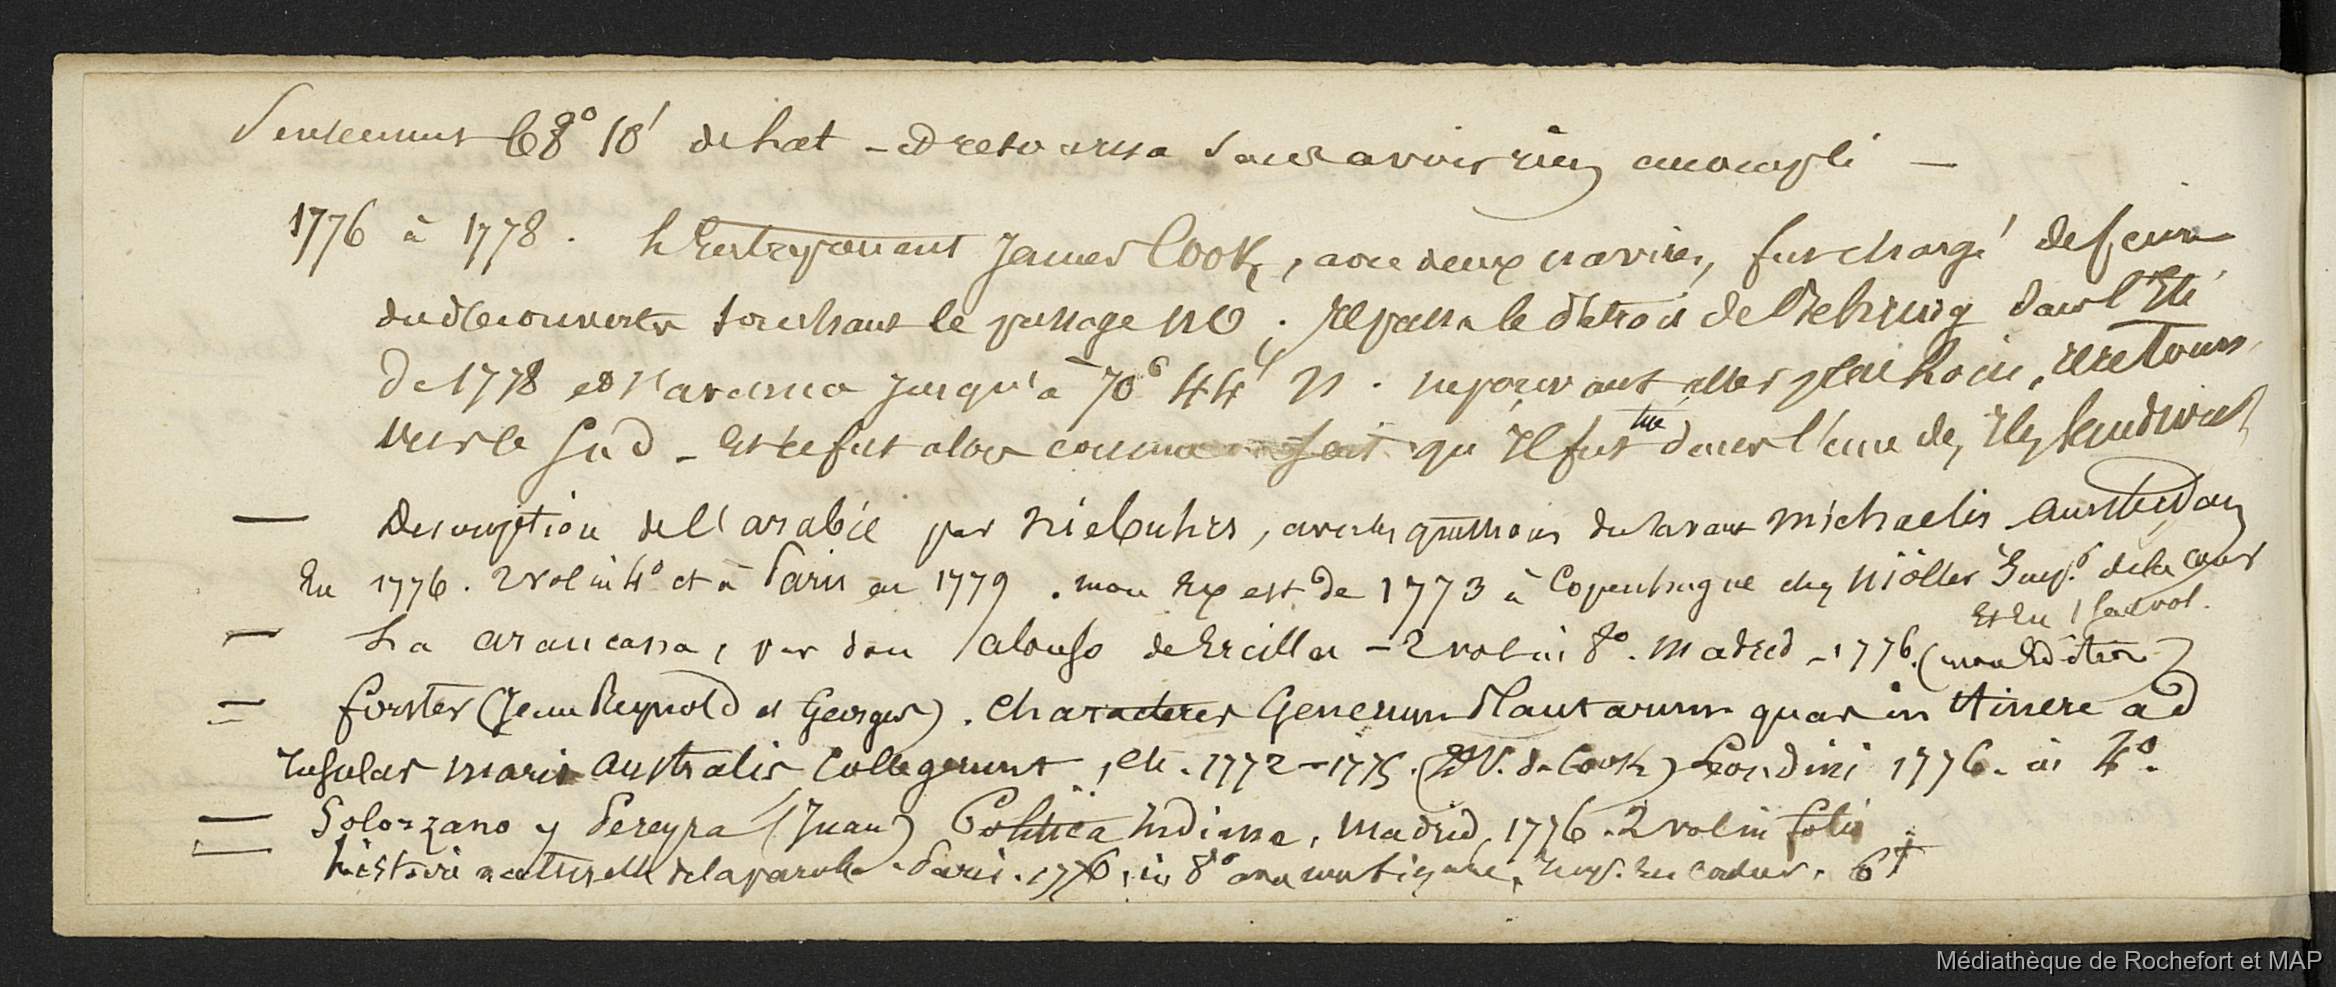 Seulement 68° 10' de Lat – et retourna sans avoir rien accompli —
1776 à 1778 . L'Entreprenant James Cook, avec deux navires, fut chargé de faire
du découvertes touchant le passage NO ; Il passa le détroit de Behring dans l'Eté
de 1778 et s'avança jusqu'à 70° 44' N . ne pouvant aller plus Loin, il retourna
vers le Sud – Et ce fut alors comme on sait qu'Il fut tué dans l'une des Iles Sandwich
— Description de l'arabie par Niebuhrs, avec les questions du savant Michaelis Amsterdam
En 1776 . 2 vol in 4° et à Paris en 1779 . mon Ex est de 1773 à Copenhague chez Möller Imp.r de la Cour
Et En 1 seul vol.
— La araucana, por don Alonso de Ercilla – 2 vol in 8°. Madrid – 1776. (mon Edition)
= Forster (Jean Reynold et Georges) . Characteres Generum Plantarum quas in itinere ad
Insulas maris australis Collegerunt, etc . 1772 – 1775 . (2d V. de Cook) Londini 1776 . in 4°.
— Solorzano y Pereyra (Juan) Politica Indiana, Madrid, 1776 . 2 vol in folio
— histoire naturelle de la parole . Paris . 1776, in 8° Imp. En Couleur . 6f
Médiathèque de Rochefort et MAP